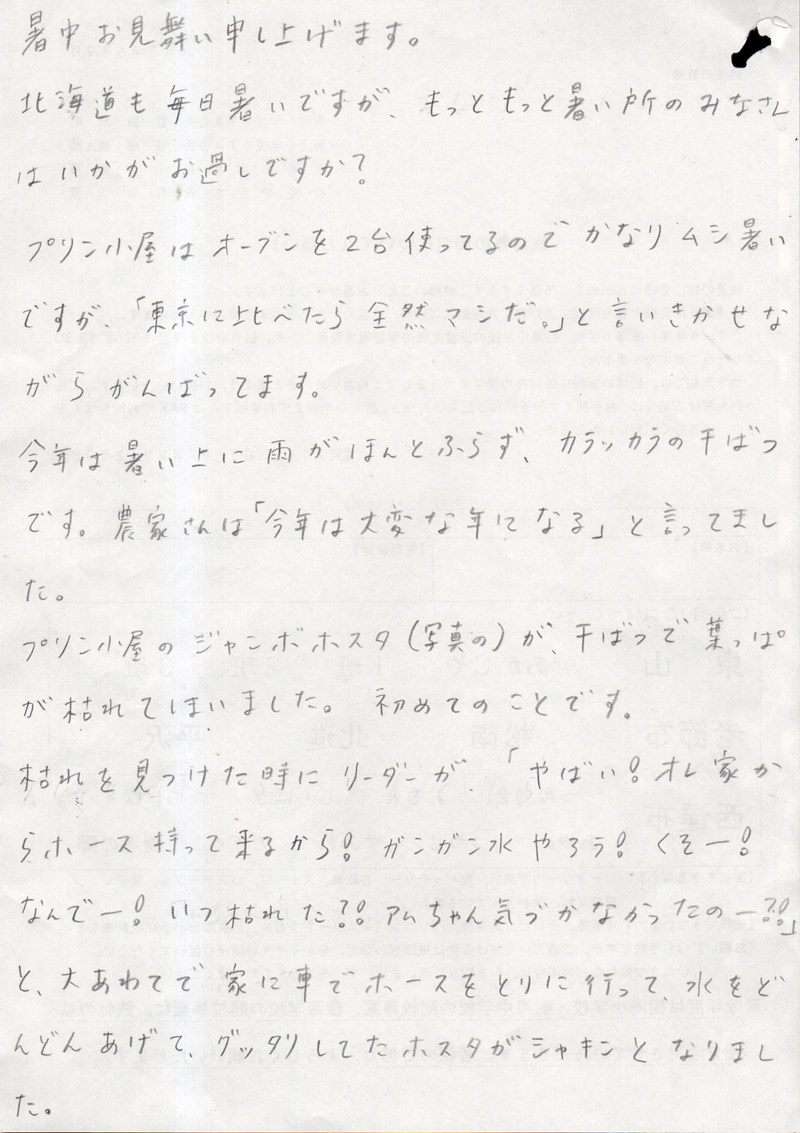 暑中お見舞い申し上げます。
北海道も毎日暑いですが、もっともっと暑い所のみなさん
はいかがお過しですか？
プリン小屋はオーブンを2台使ってるのでかなりムシ暑い
ですが、「東京に比べたら全然マシだ。」と言いきかせな
がらがんばってます。
今年は暑い上に雨がほんとふらず、カラッカラの干ばつ
です。農家さんは「今年は大変な年になる」と言ってまし
た。
プリン小屋のジャンボホスタ(写真の)が、干ばつで葉っぱ
が枯れてしまいました。初めてのことです。
枯れを見つけた時にリーダーが、「やばい！オレ家か
らホース持って来るから！ガンガン水やろう！くそー！
なんでー！いつ枯れた？！アムちゃん気づかなかったのー？！」
と、大あわてで家に車でホースをとりに行って、水をど
んどんあげて、グッタリしてたホスタがシャキンとなりまし
た。